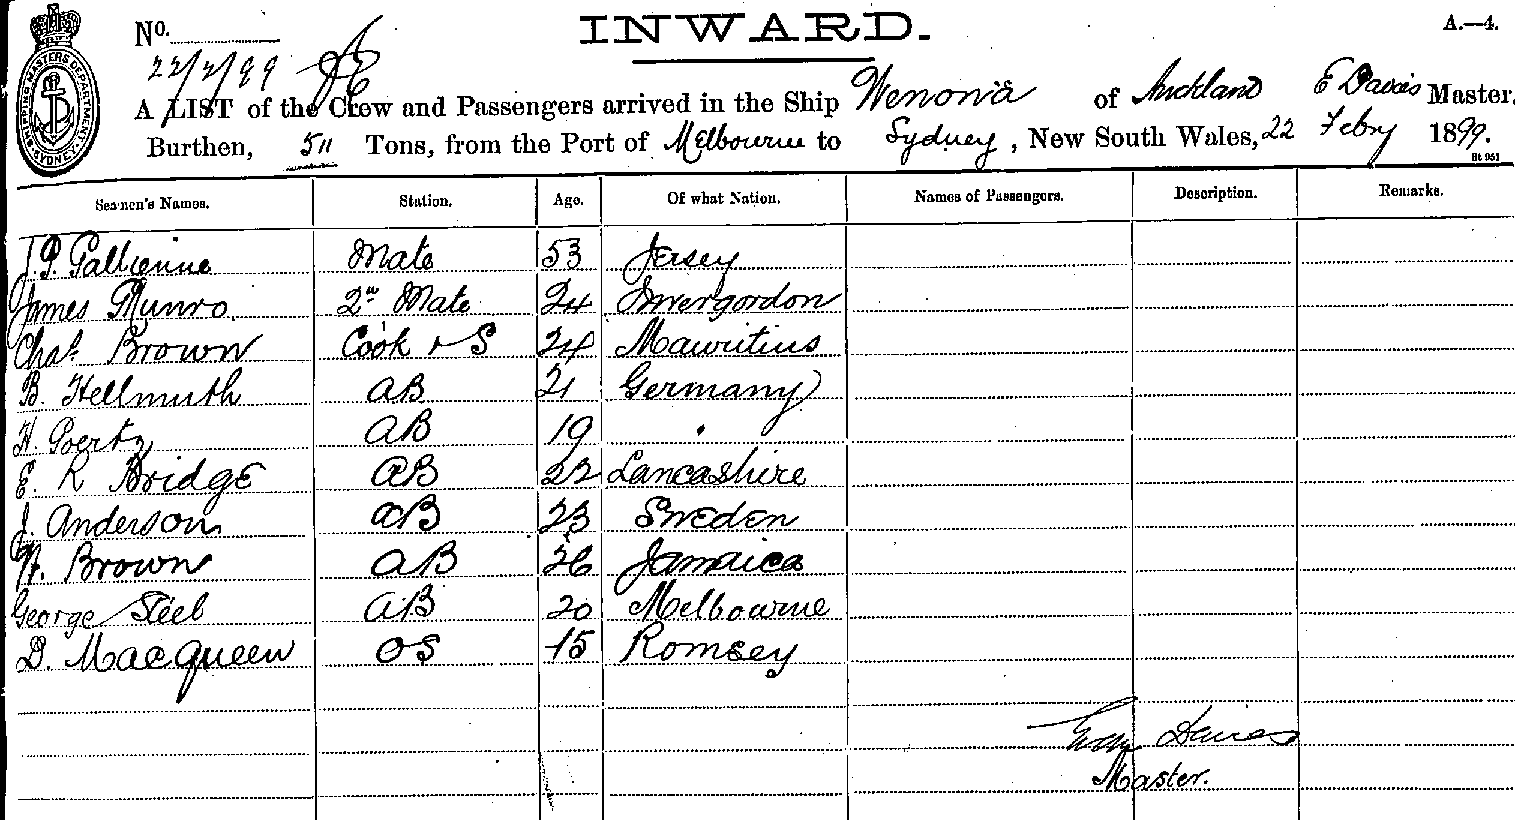 No.
INWARD.
A.—4.
22/2/99
A LIST of the Crew and Passengers arrived in the Ship Wenona of Auckland E Davies Master,
Burthen, 511 Tons, from the Port of Melbourne to Sydney, New South Wales, 22 Febry 1899.
SHIPPING MASTERS DEPARTMENT SYDNEY
Seamen's Names. Station. Age. Of what Nation. Names of Passengers. Description. Remarks.
J. P. Gallienne Mate 53 Jersey
James Munro 2nd Mate 24 Invergordon
Chas. Brown Cook & S 24 Mauritius
B. Hellmuth AB 21 Germany
H. Goertz AB 19
E. R Bridge AB 22 Lancashire
J. Anderson AB 23 Sweden
Brown AB 26 Jamaica
George Steel AB 20 Melbourne
D. Macqueen OS 15 Romsey
Evan Davies
Master.